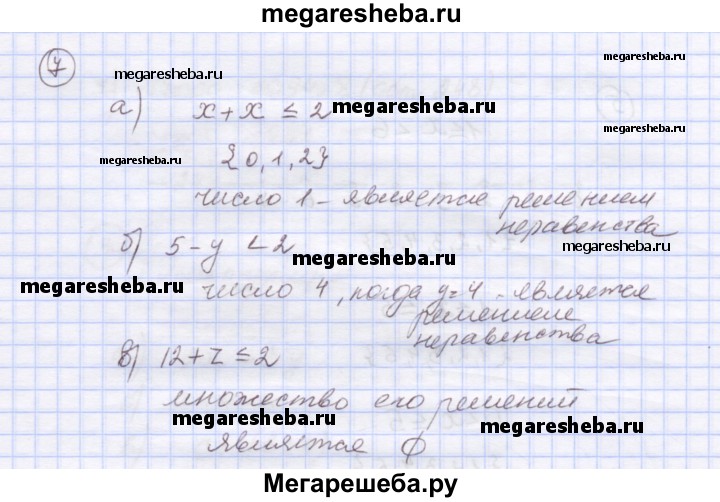 megaresheba.ru
7
megaresheba.ru
а) x + x ≤ 2 megaresheba.ru
megaresheba.ru {0,1,2}
число 1 - является решением
неравенства
б) 5 - y < 2
megaresheba.ru
megaresheba.ru число 4, когда y=4 - является
решением
неравенства
megaresheba.ru
в) 12 + z ≤ 2
множество его решений
megaresheba.ru megaresheba.ru
является ф
Мегарешеба.ру